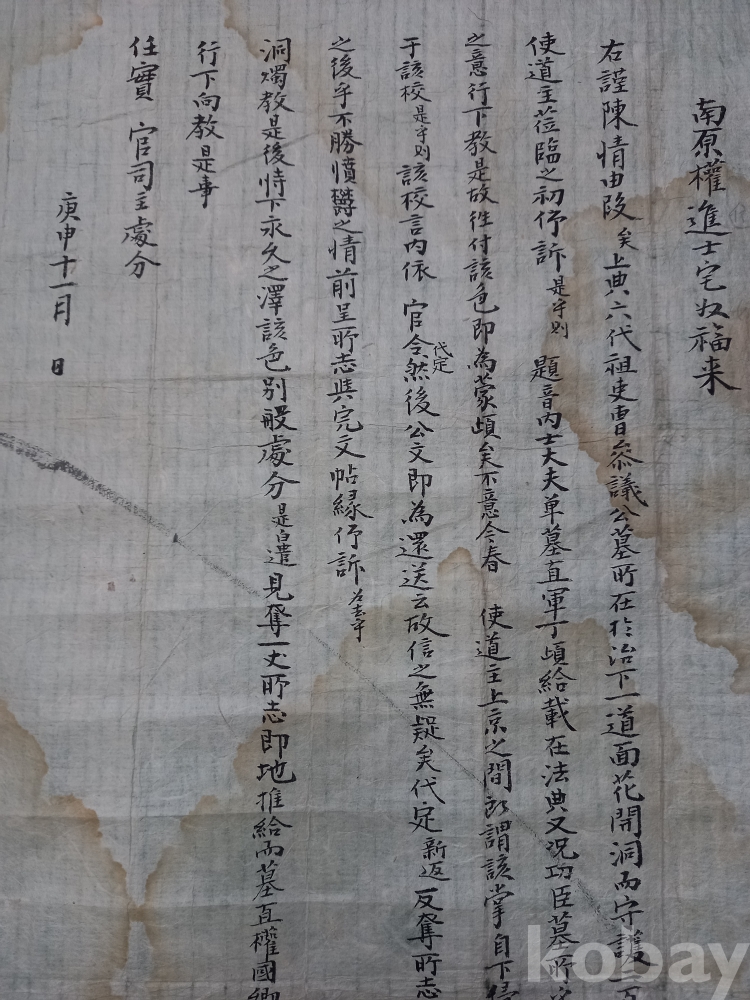 南原權進士宅奴福来
右謹陳情由段矣上典六代祖吏曹參議公墓所在於治下一道面花開洞而守護一
使道主莅臨之初仰訴是乎則 題音內士大夫单墓直軍丁頉給載在法典又况功臣墓所
之意行下教是故徃付該色即為蒙頉矣不意今春 使道主上京之間所謂該掌自下
于該校是乎則該校言內依 官令然後代定公文即為還送云故信之無疑矣代定新迈反奪所志
之後乎不勝憤欝之情前呈所志與完文帖緣仰訴為去乎
洞燭教是後特下永久之澤該色別般處分是白遣見奪一丈所志即地推給而墓直權國卿
行下向教是事
任實 官司主處分
庚申十一月 日
kobay